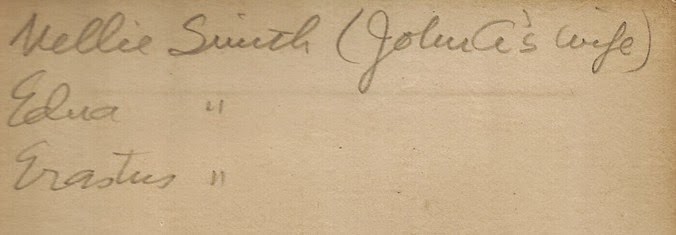 Nellie Smith (John A's wife)
Edna "
Erastus "